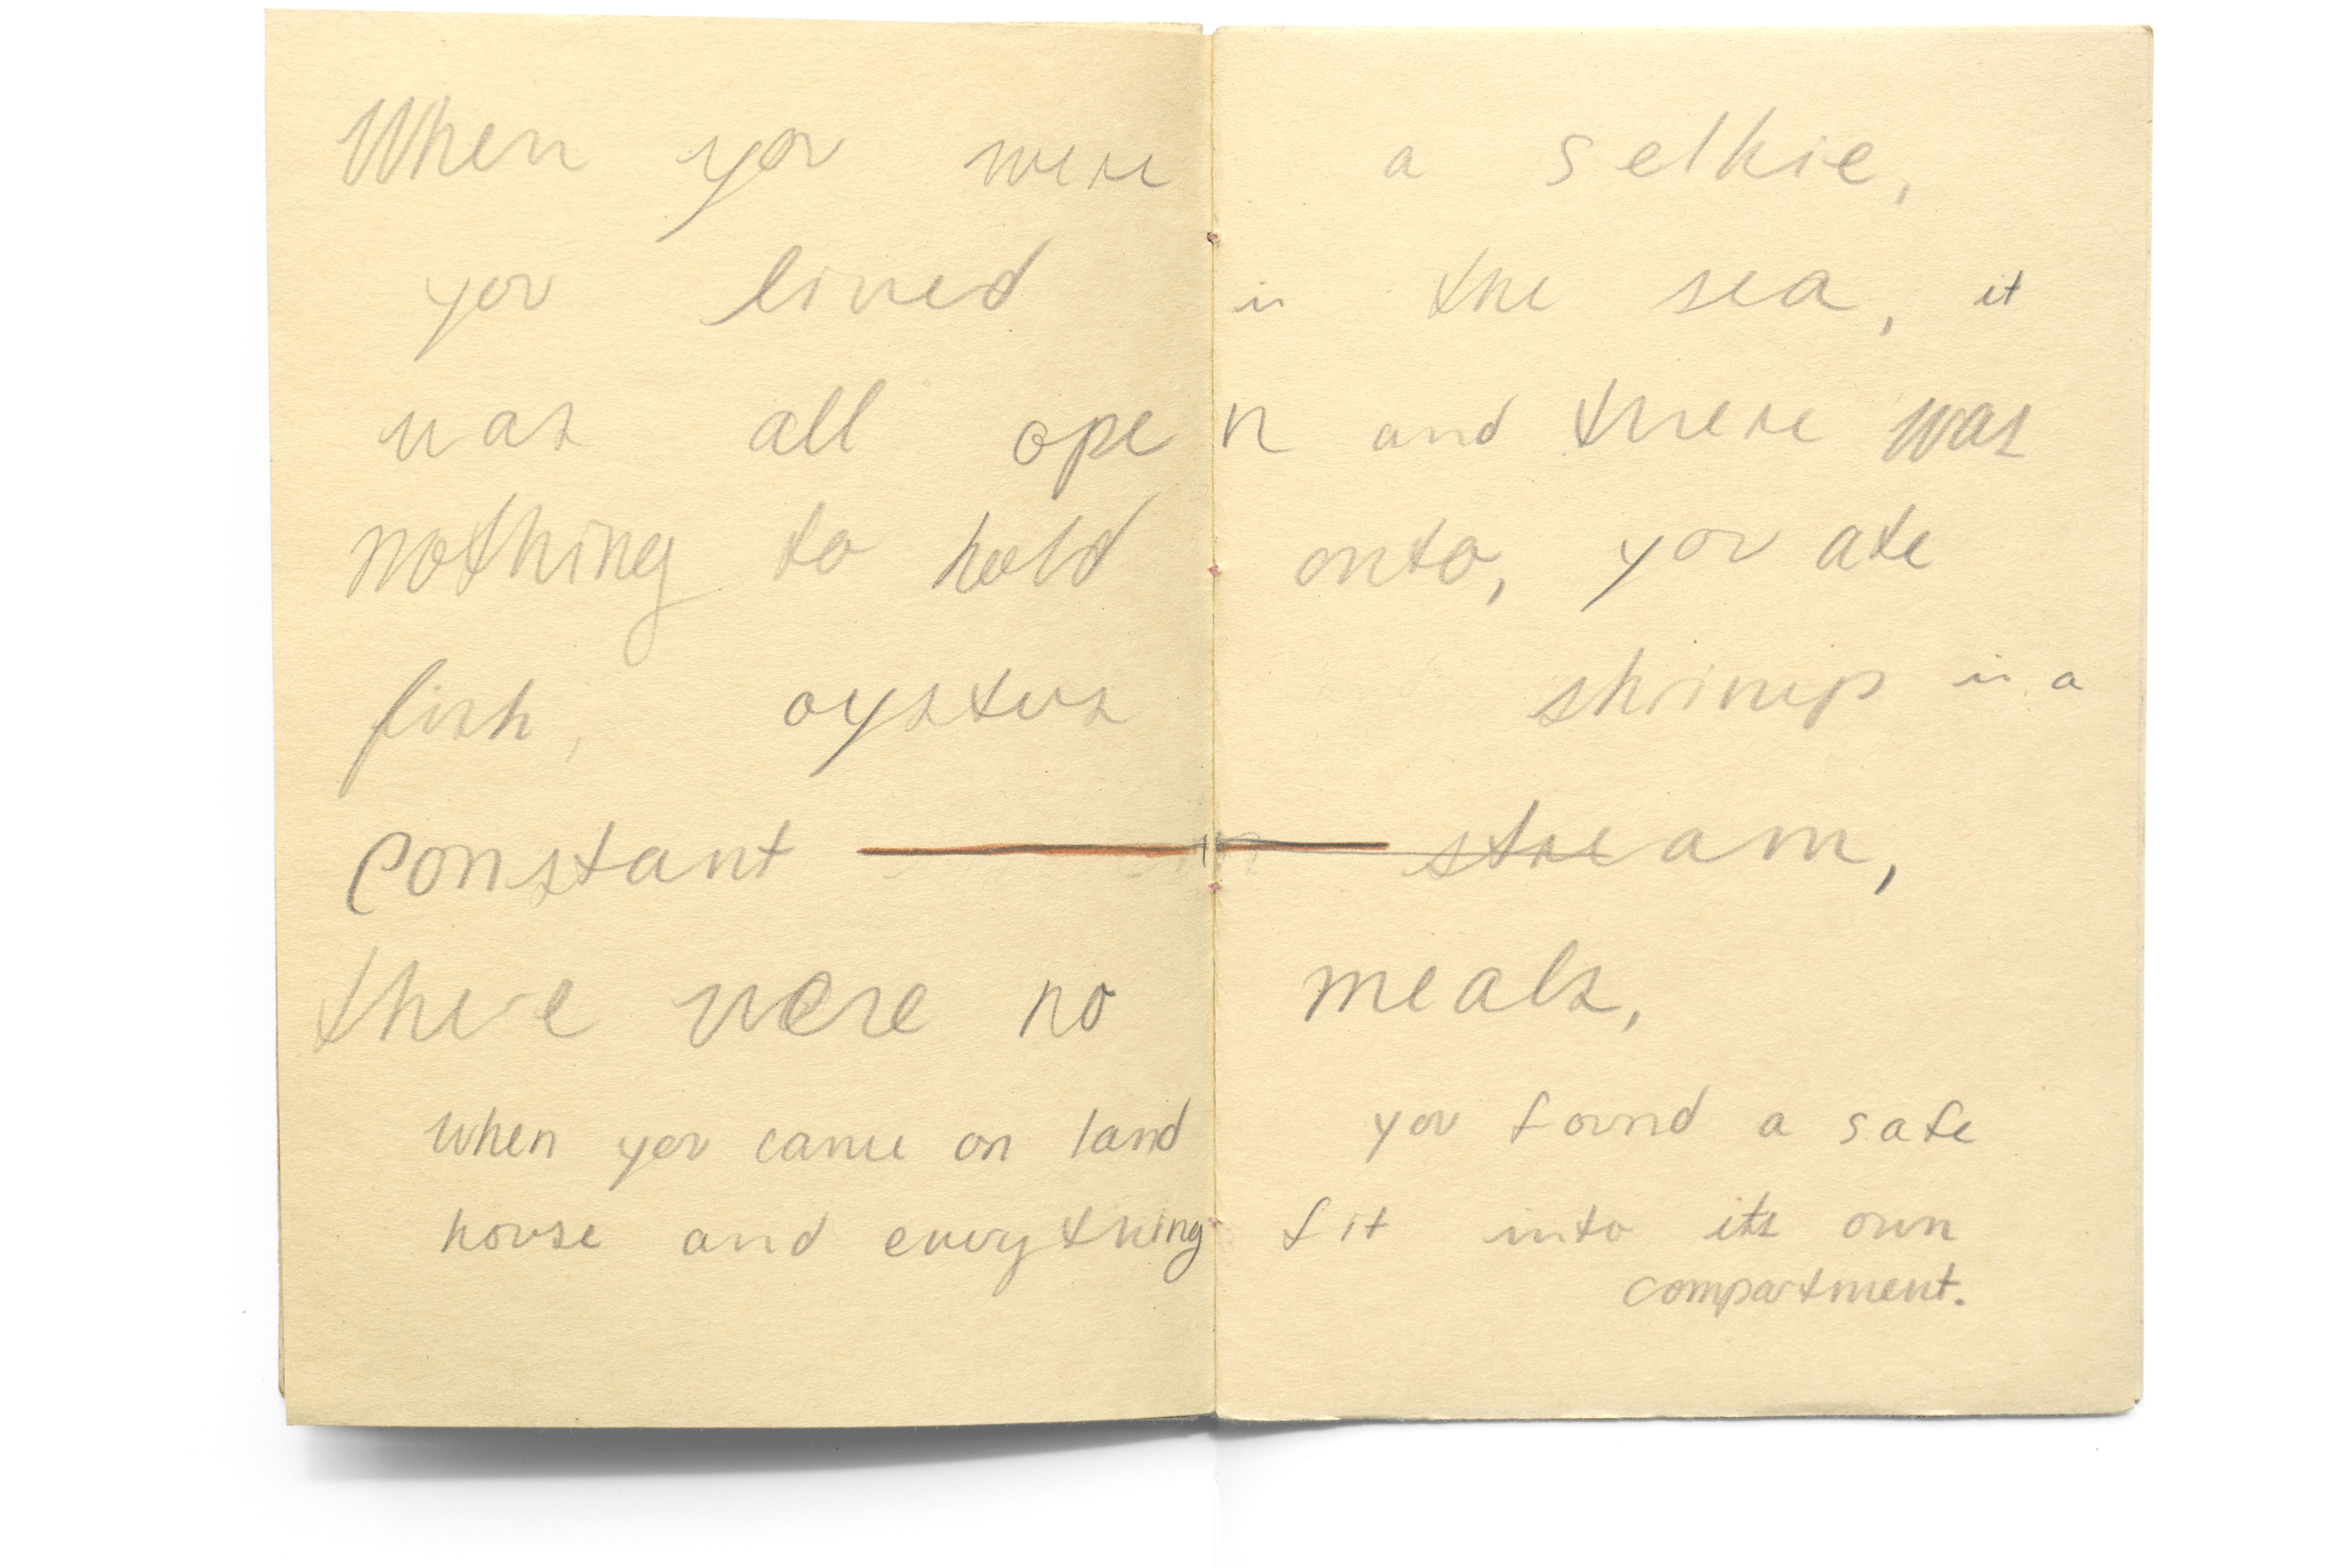 When you were a selkie,
you lived in the sea, it
was all open and there was
nothing to hold onto, you ate
fish, oysters shrimp in a
constant stream,
there were no meals,
when you came on land you found a safe
house and everything fit into its own
compartment.